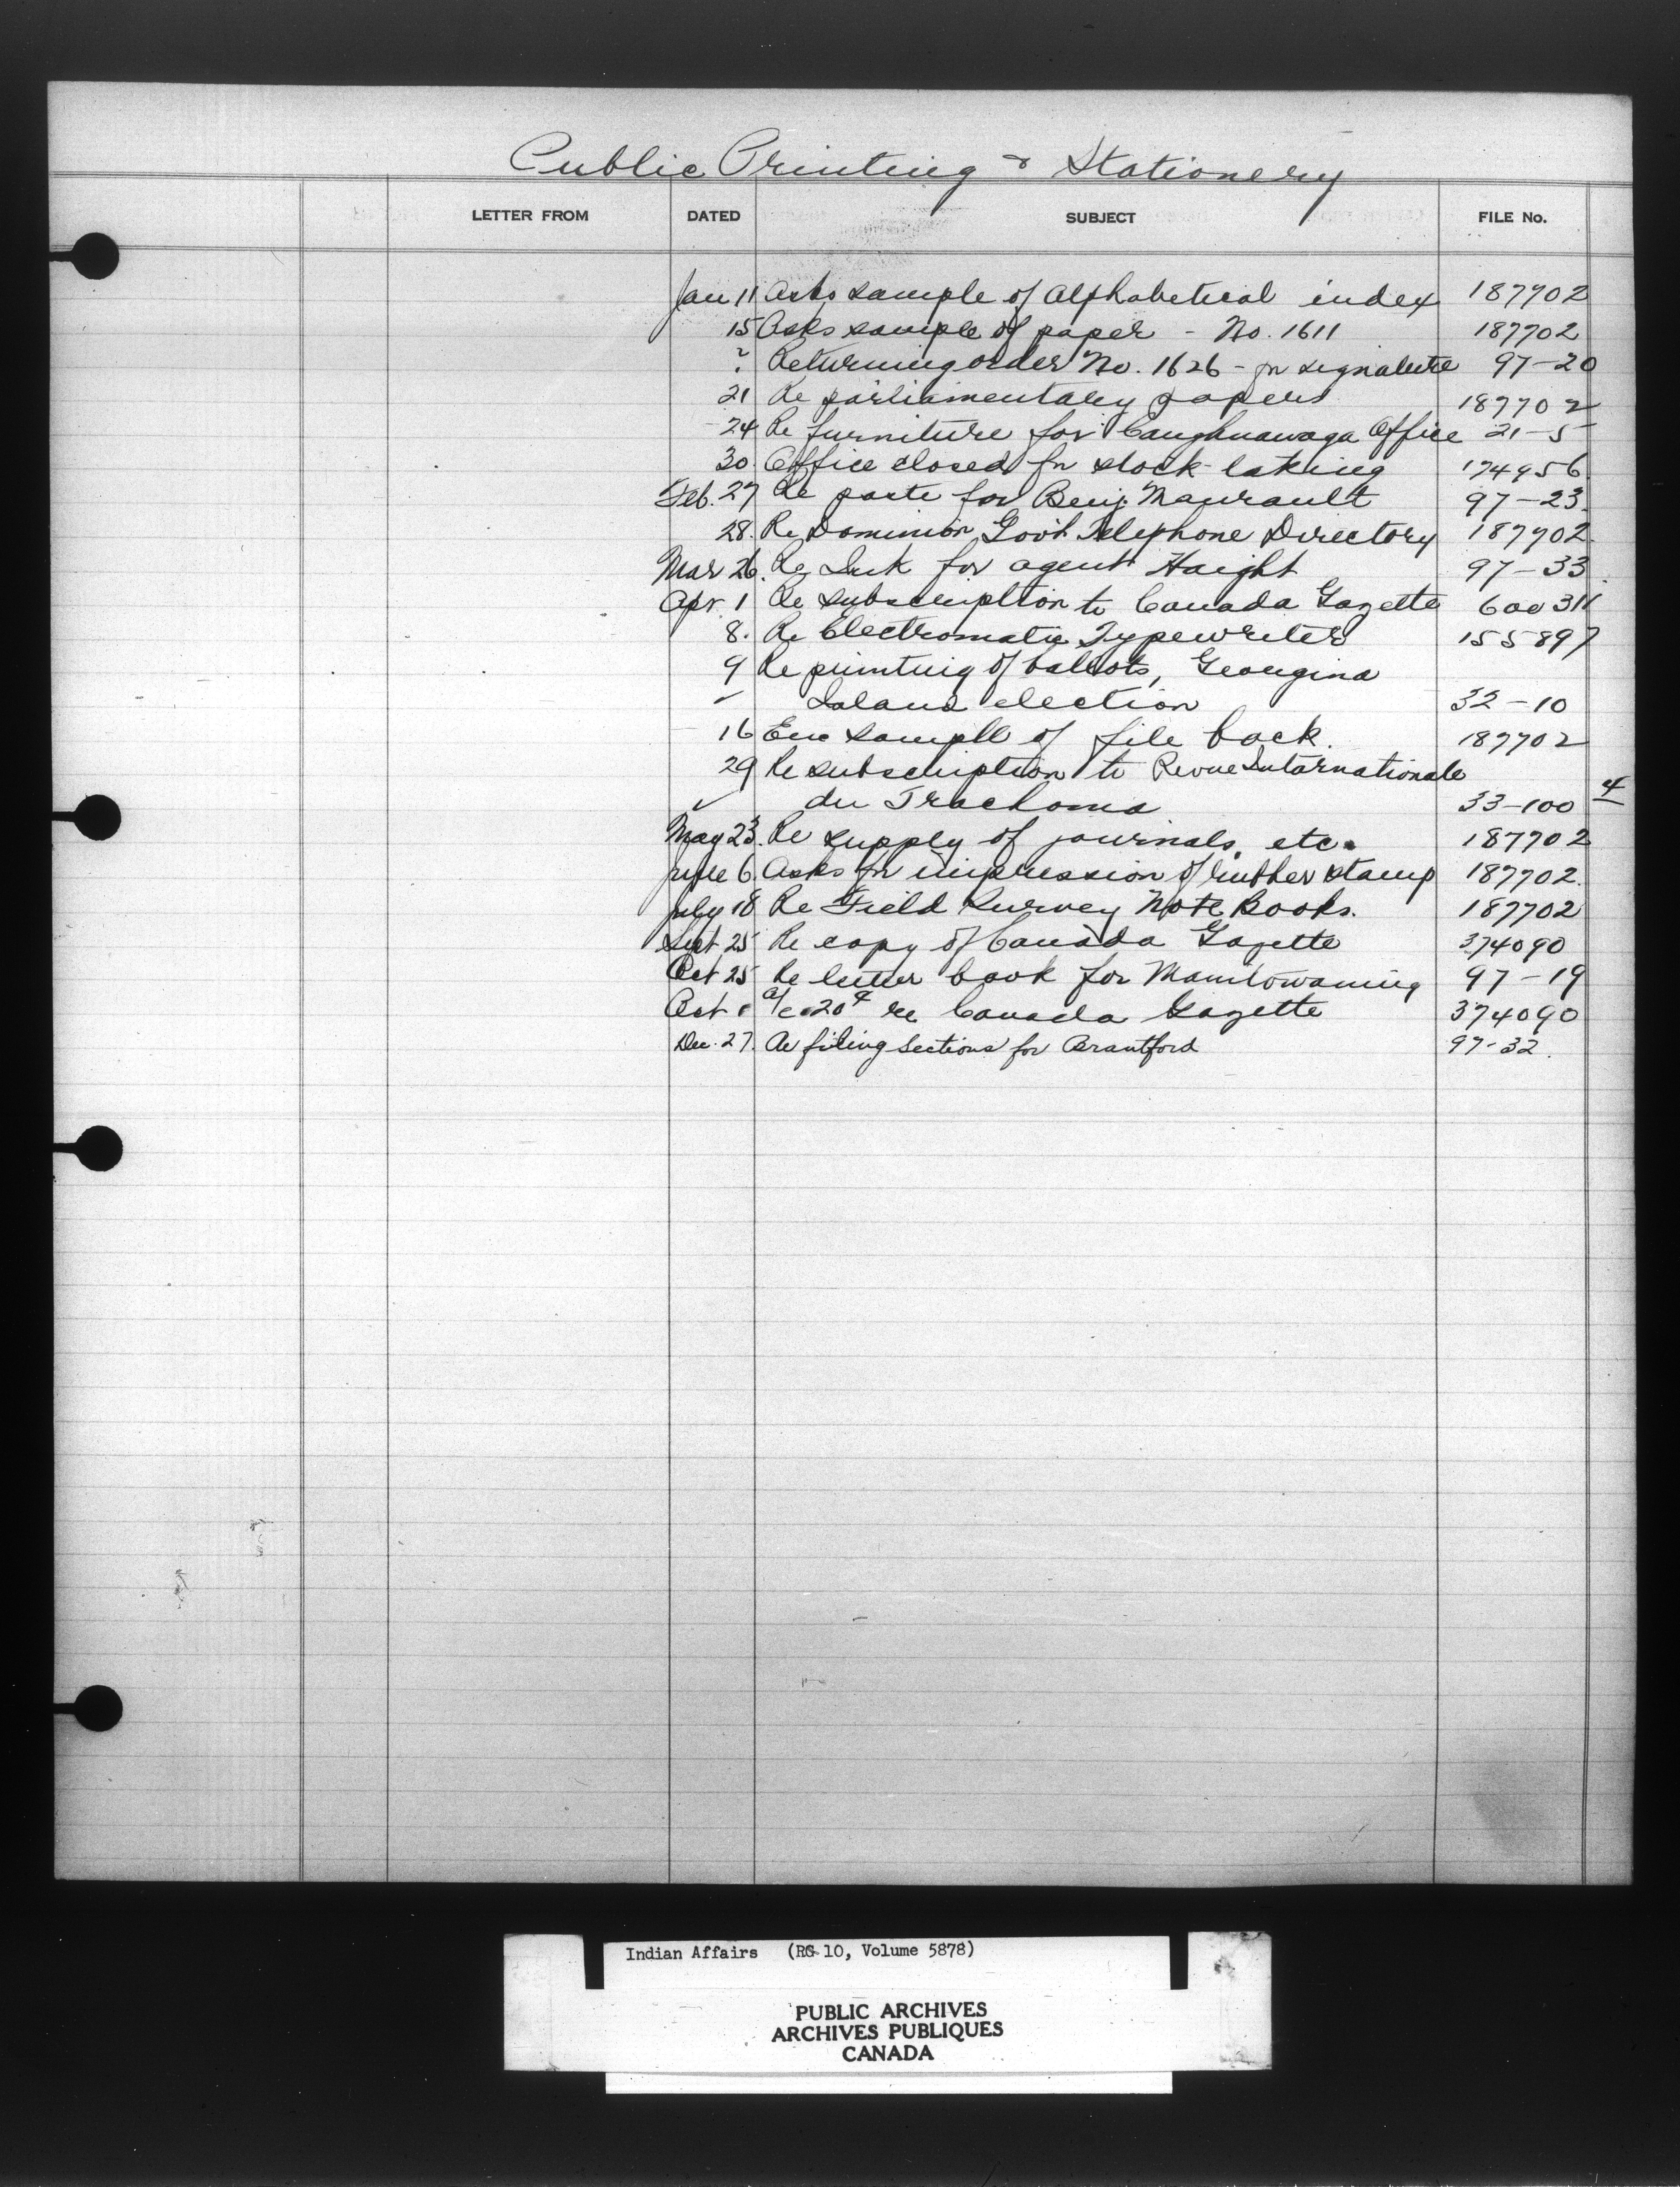 Public Printing & Stationery
LETTER FROM DATED SUBJECT FILE No.
Jan 11 Asks sample of Alphabetical index 187702
15 Asks sample of paper - No. 1611 187702
? Returning order No. 1626 - for signature 97-20
21 Re parliamentary papers 187702
24 Re furniture for Caughnawaga Office 21-5
30. Office closed for stock-taking 174956
Feb. 27 Re paste for Benj. Maurault 97-23.
28. Re Dominion Gov't Telephone Directory 187702.
Mar 26. Re Ink for agent Haight 97-33
Apr. 1 Re subscription to Canada Gazette 600311
8. Re Electromatic Typewriter 155897
9 Re printing of ballots, Georgina
Island election 32-10
16 Enc sample of file back. 187702
29 Re subscription to Revue Internationale
du Trachoma 33-100 4
May 23. Re supply of journals, etc. 187702
June 6. Asks for impression of rubber stamp 187702.
July 18 Re Field Survey Note Books. 187702
Sept 25 Re copy of Canada Gazette 374090
Oct 25 Re letter book for Manitowaning 97-19
Oct a/c 20¢ re Canada Gazette 374090
Dec. 27. Re filing sections for Brantford 97-32.
Indian Affairs (RG 10, Volume 5878)
PUBLIC ARCHIVES
ARCHIVES PUBLIQUES
CANADA